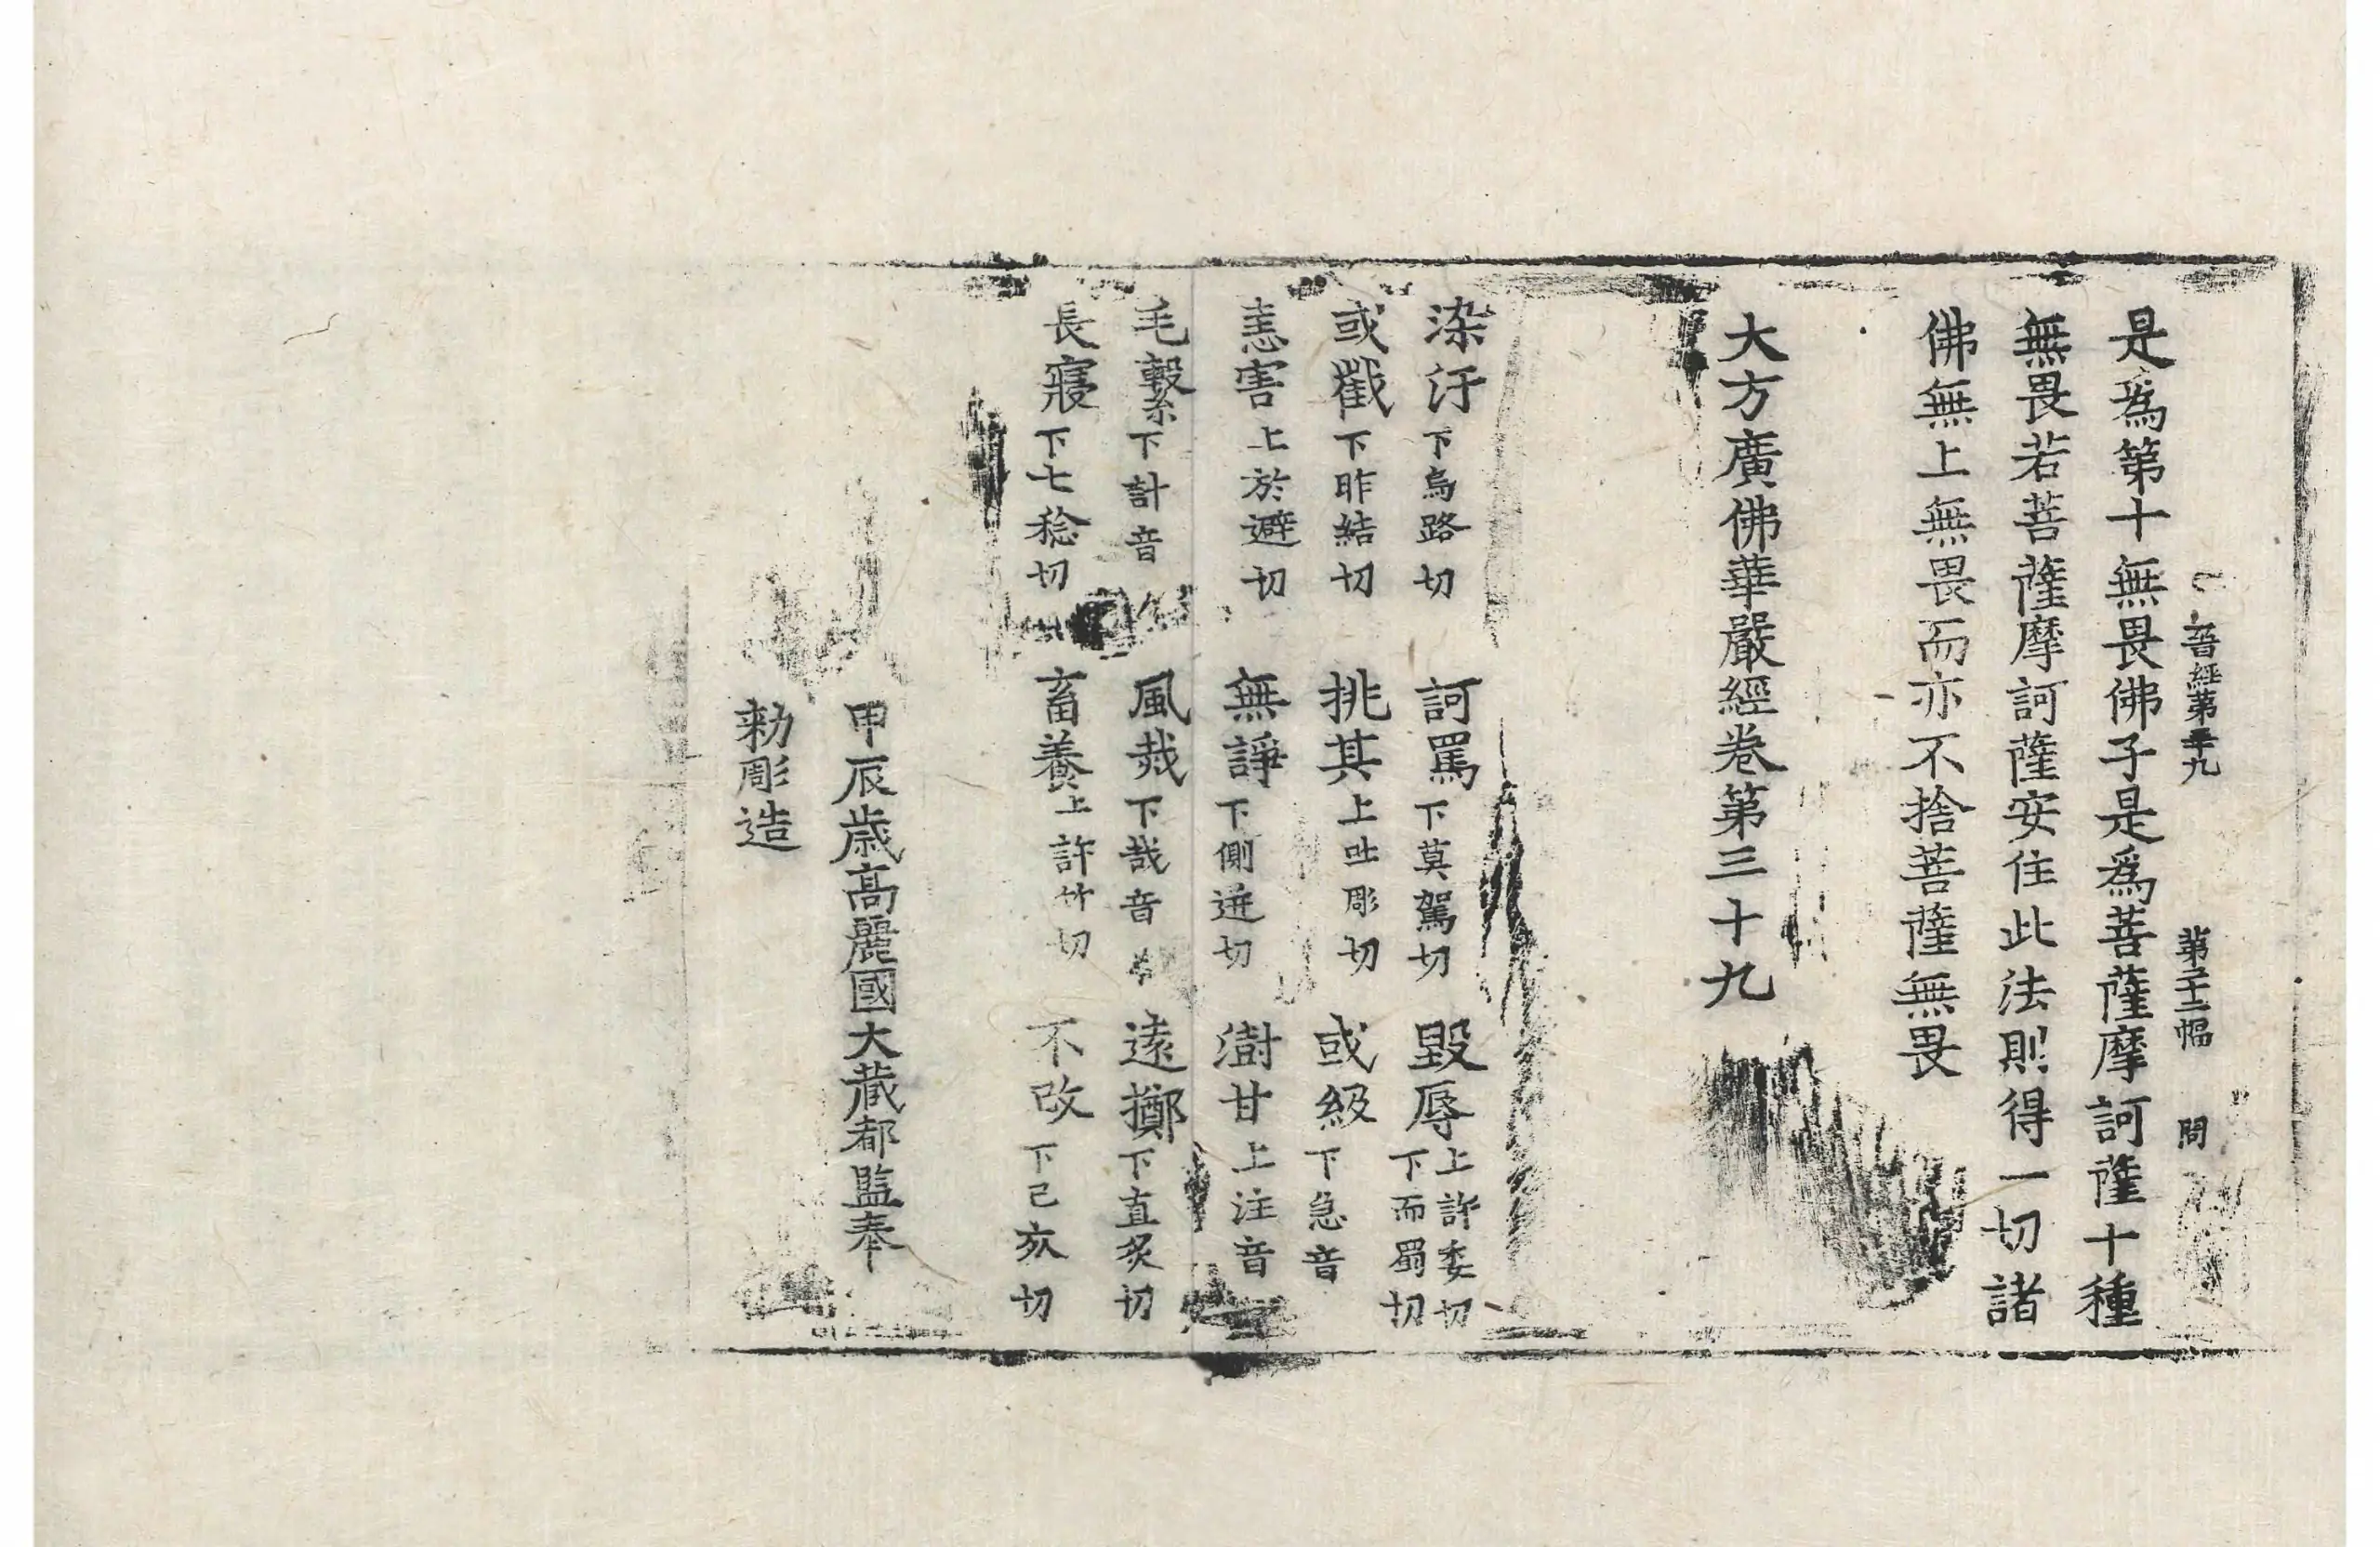 晉經第三十九 第二十二幅 問
是爲第十無畏佛子是爲菩薩摩訶薩十種
無畏若菩薩摩訶薩安住此法則得一切諸
佛無上無畏而亦不捨菩薩無畏
大方廣佛華嚴經卷第三十九
染汙下烏路切 訶罵下莫駕切 毀辱上許委切下而蜀切
或㦢下昨結切 挑其上吐彫切 或級下急音
恚害上於避切 無諍下側迸切 澍甘上注音
毛繫下計音 風㢤下哉音 遠擲下直炙切
長寢下七稔切 畜養上許竹切 不改下己亥切
甲辰歲高麗國大藏都監奉
勑彫造